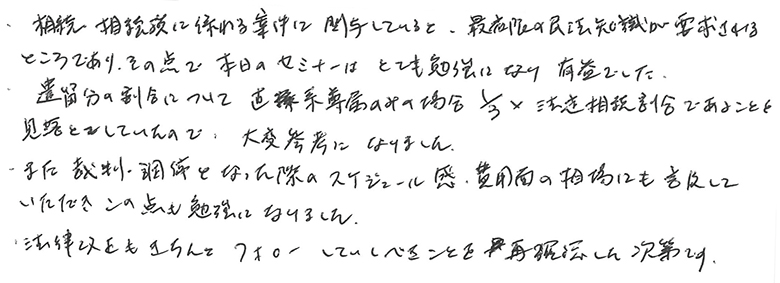 ・相続 相続税に係わる案件に関与していると、最低限の民法知識が要求される
ところであり、その点で本日のセミナーはとても勉強になり有益でした。
・遺留分の割合について 直系尊属のみの場合 1/3 × 法定相続割合であることを
見落としていたので、大変参考になりました。
・また 裁判・調停となった際のスケジュール感、費用面の相場にも言及して
いただき この点も勉強になりました。
・法律改正もきちんとフォローしていくべきことを再確認した次第です。